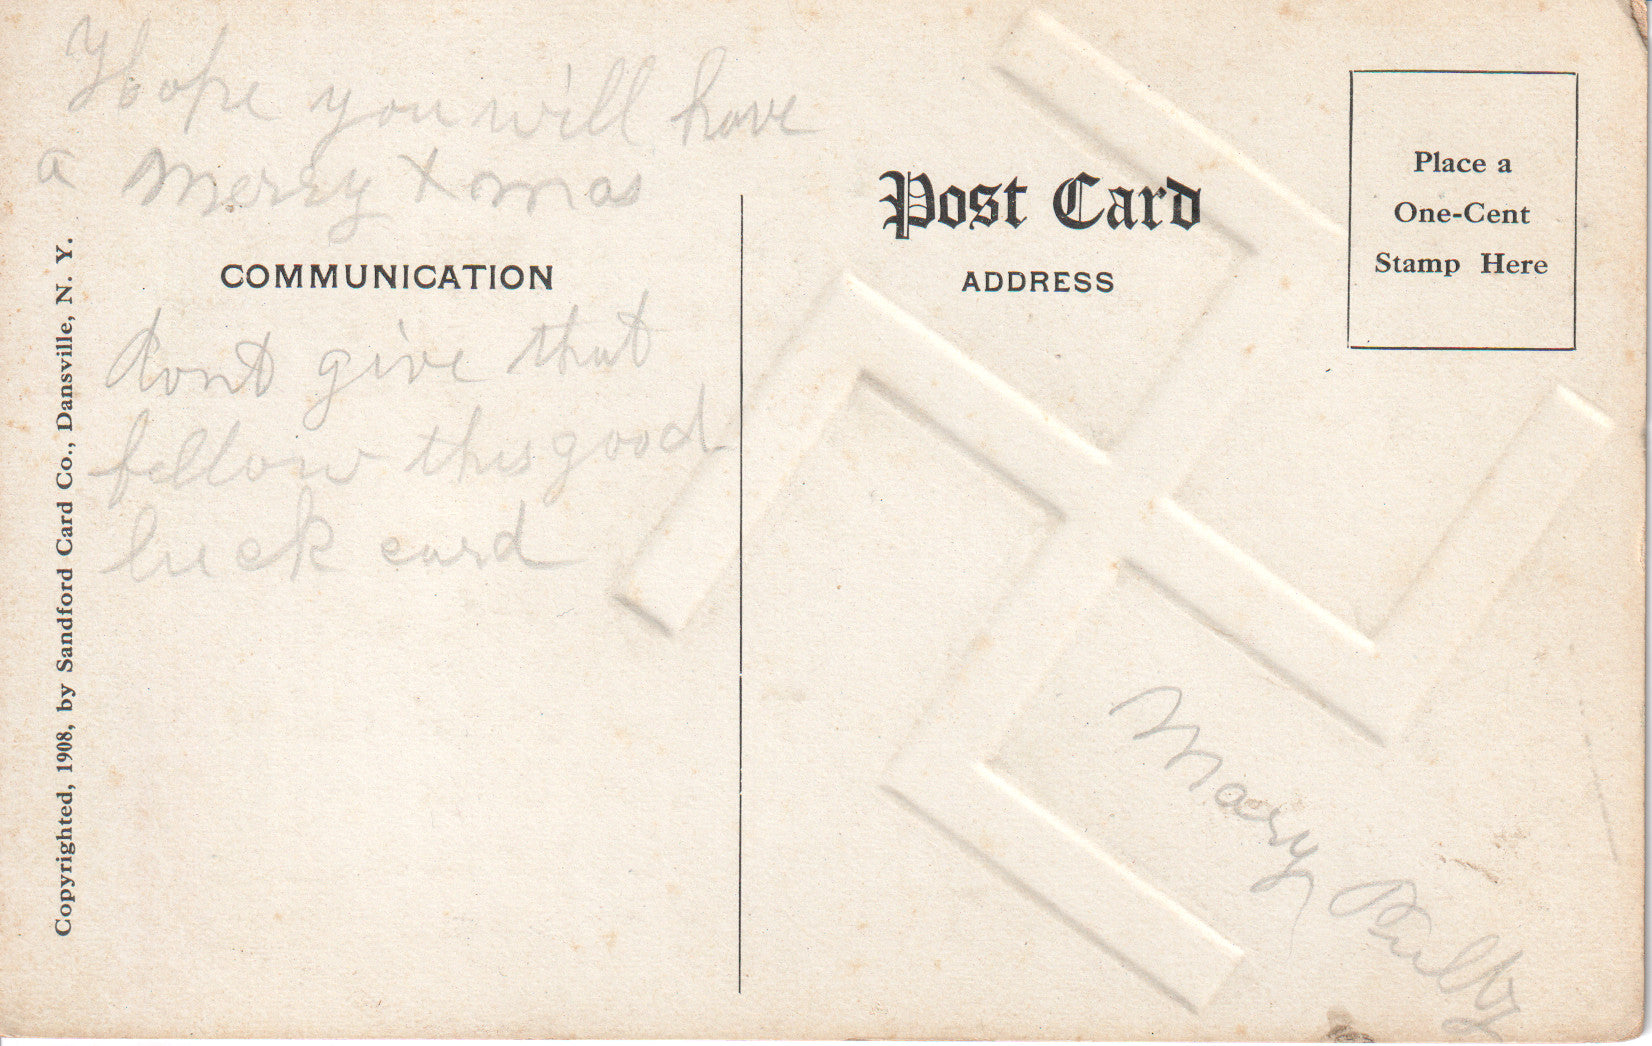 Hope you will have
a Merry Xmas
COMMUNICATION
dont give that
fellow this good
luck card
Copyrighted, 1908, by Sandford Card Co., Dansville, N. Y.
Post Card
ADDRESS
Place a
One-Cent
Stamp Here
Mary